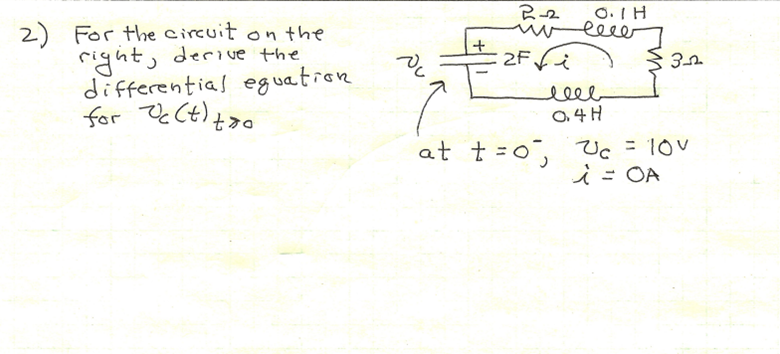 2) For the circuit on the
right, derive the
differential equation
for vc(t) t≥0
2Ω 0.1H
vc + 2F i 3Ω
−
0.4H
at t=0⁻, vc = 10V
i = 0A